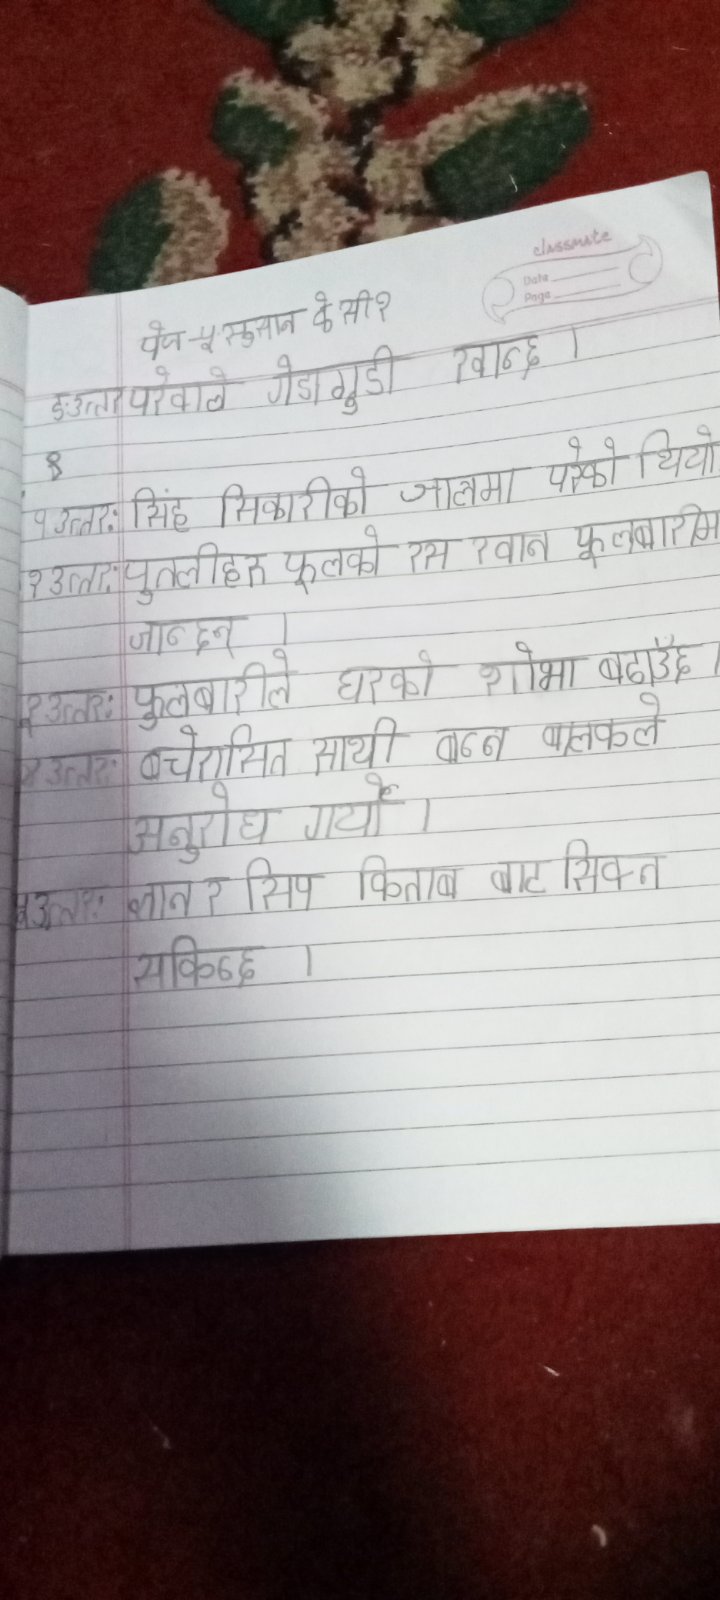 classmate
Date
Page
पेज-५ रुसान के सी १
ङ:उत्तर परेवाले गेडागुडी खान्छ ।
४
१ उत्तर: सिंह सिकारीको जालमा परेको थियो
२ उत्तर: पुतलीहरु फूलको रस खान फूलबारीम
जान्छन् ।
३ उत्तर: फुलबारीले घरको शोभा बढाउँछ ।
४ उत्तर: बचेरासित साथी बन्न बालकले
अनुरोध गर्यो ।
५ उत्तर: ज्ञान र सिप किताब बाट सिक्न
सकिन्छ ।